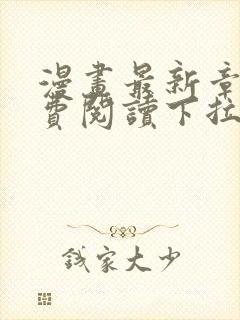 漫畫最新章
費閱讀下拉
錢家大少